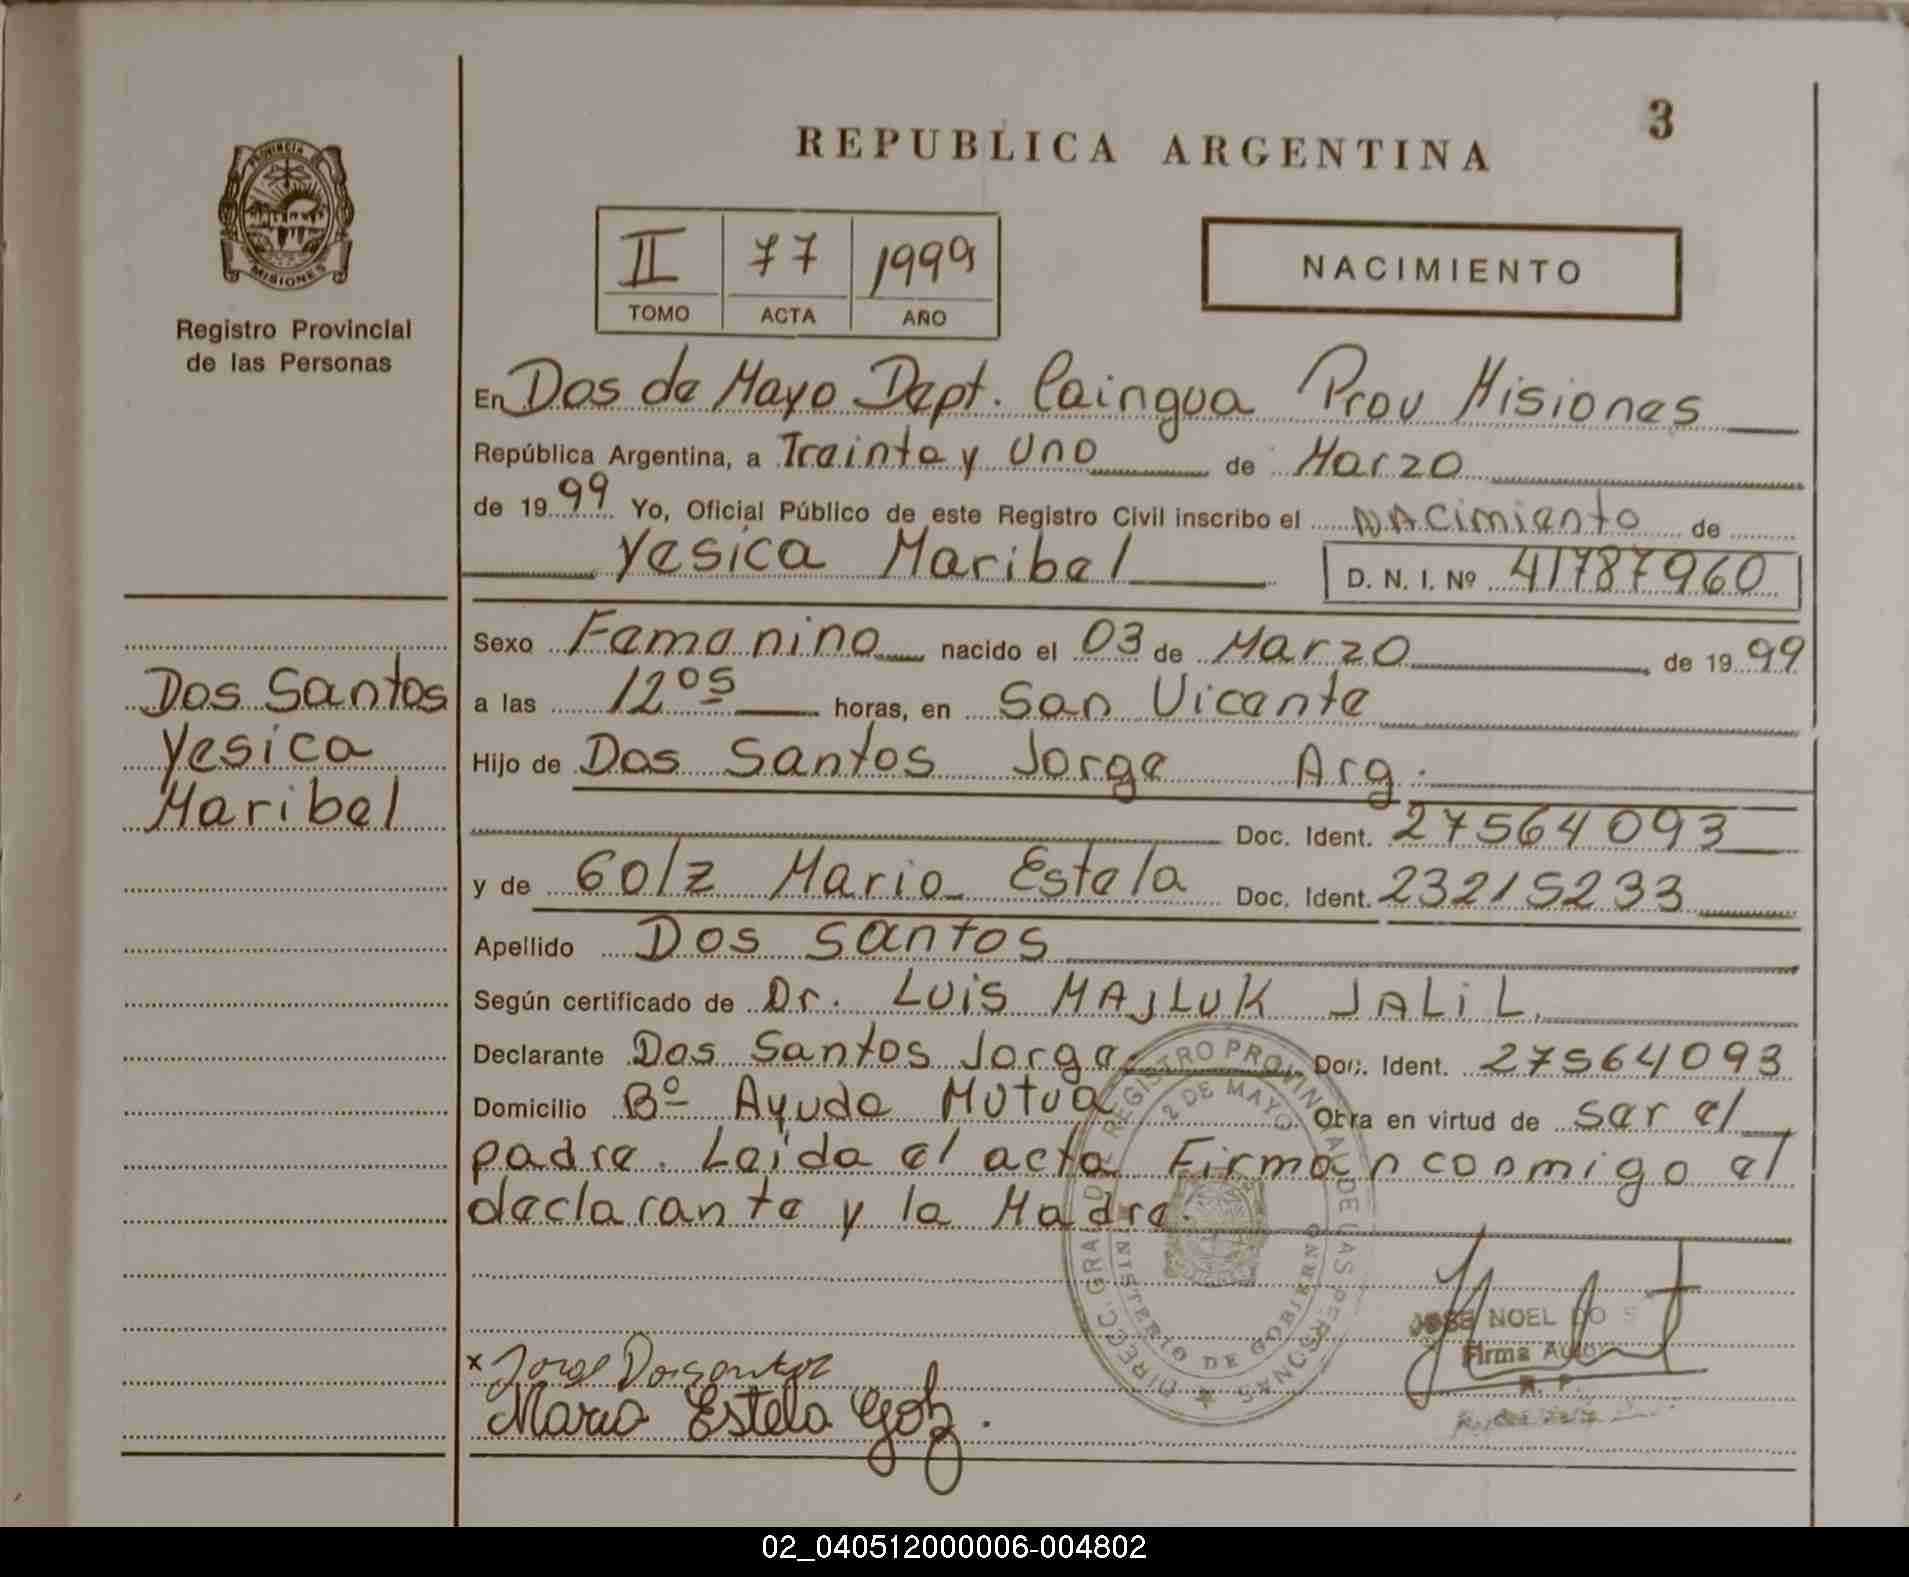 3
REPUBLICA ARGENTINA
PROVINCIA DE
MISIONES
Registro Provincial
de las Personas
II 77 1999
TOMO ACTA AÑO
NACIMIENTO
En Dos de Mayo Dept. Caingua Prov Misiones
República Argentina, a Treinta y uno de Marzo
de 1999 Yo, Oficial Público de este Registro Civil inscribo el NAcimiento de
Yesica Maribel D. N. I. Nº 41787960
Sexo Femenino nacido el 03 de Marzo de 1999
a las 12⁰⁵ horas, en San Vicente
Hijo de Dos Santos Jorge Arg.
Doc. Ident. 27564093
y de Golz Maria Estela Doc. Ident. 23215233
Apellido Dos Santos
Según certificado de Dr. Luis MAJLUK JALiL.
Declarante Dos Santos Jorge. Doc. Ident. 27564093
Domicilio Bº Ayuda Mutua Obra en virtud de ser el
padre. Leida el acta Firman conmigo el
declarante y la Madre.
Dos Santos
Yesica
Maribel
DIRECC. GRAL. DE REGISTRO PROVINCIAL DE LAS PERSONAS
2 DE MAYO
MINISTERIO DE GOBIERNO
JOSE NOEL DO S
Firma Auto
R. P.
x Jorge Dossantos
Maria Estela Golz.
02_040512000006-004802